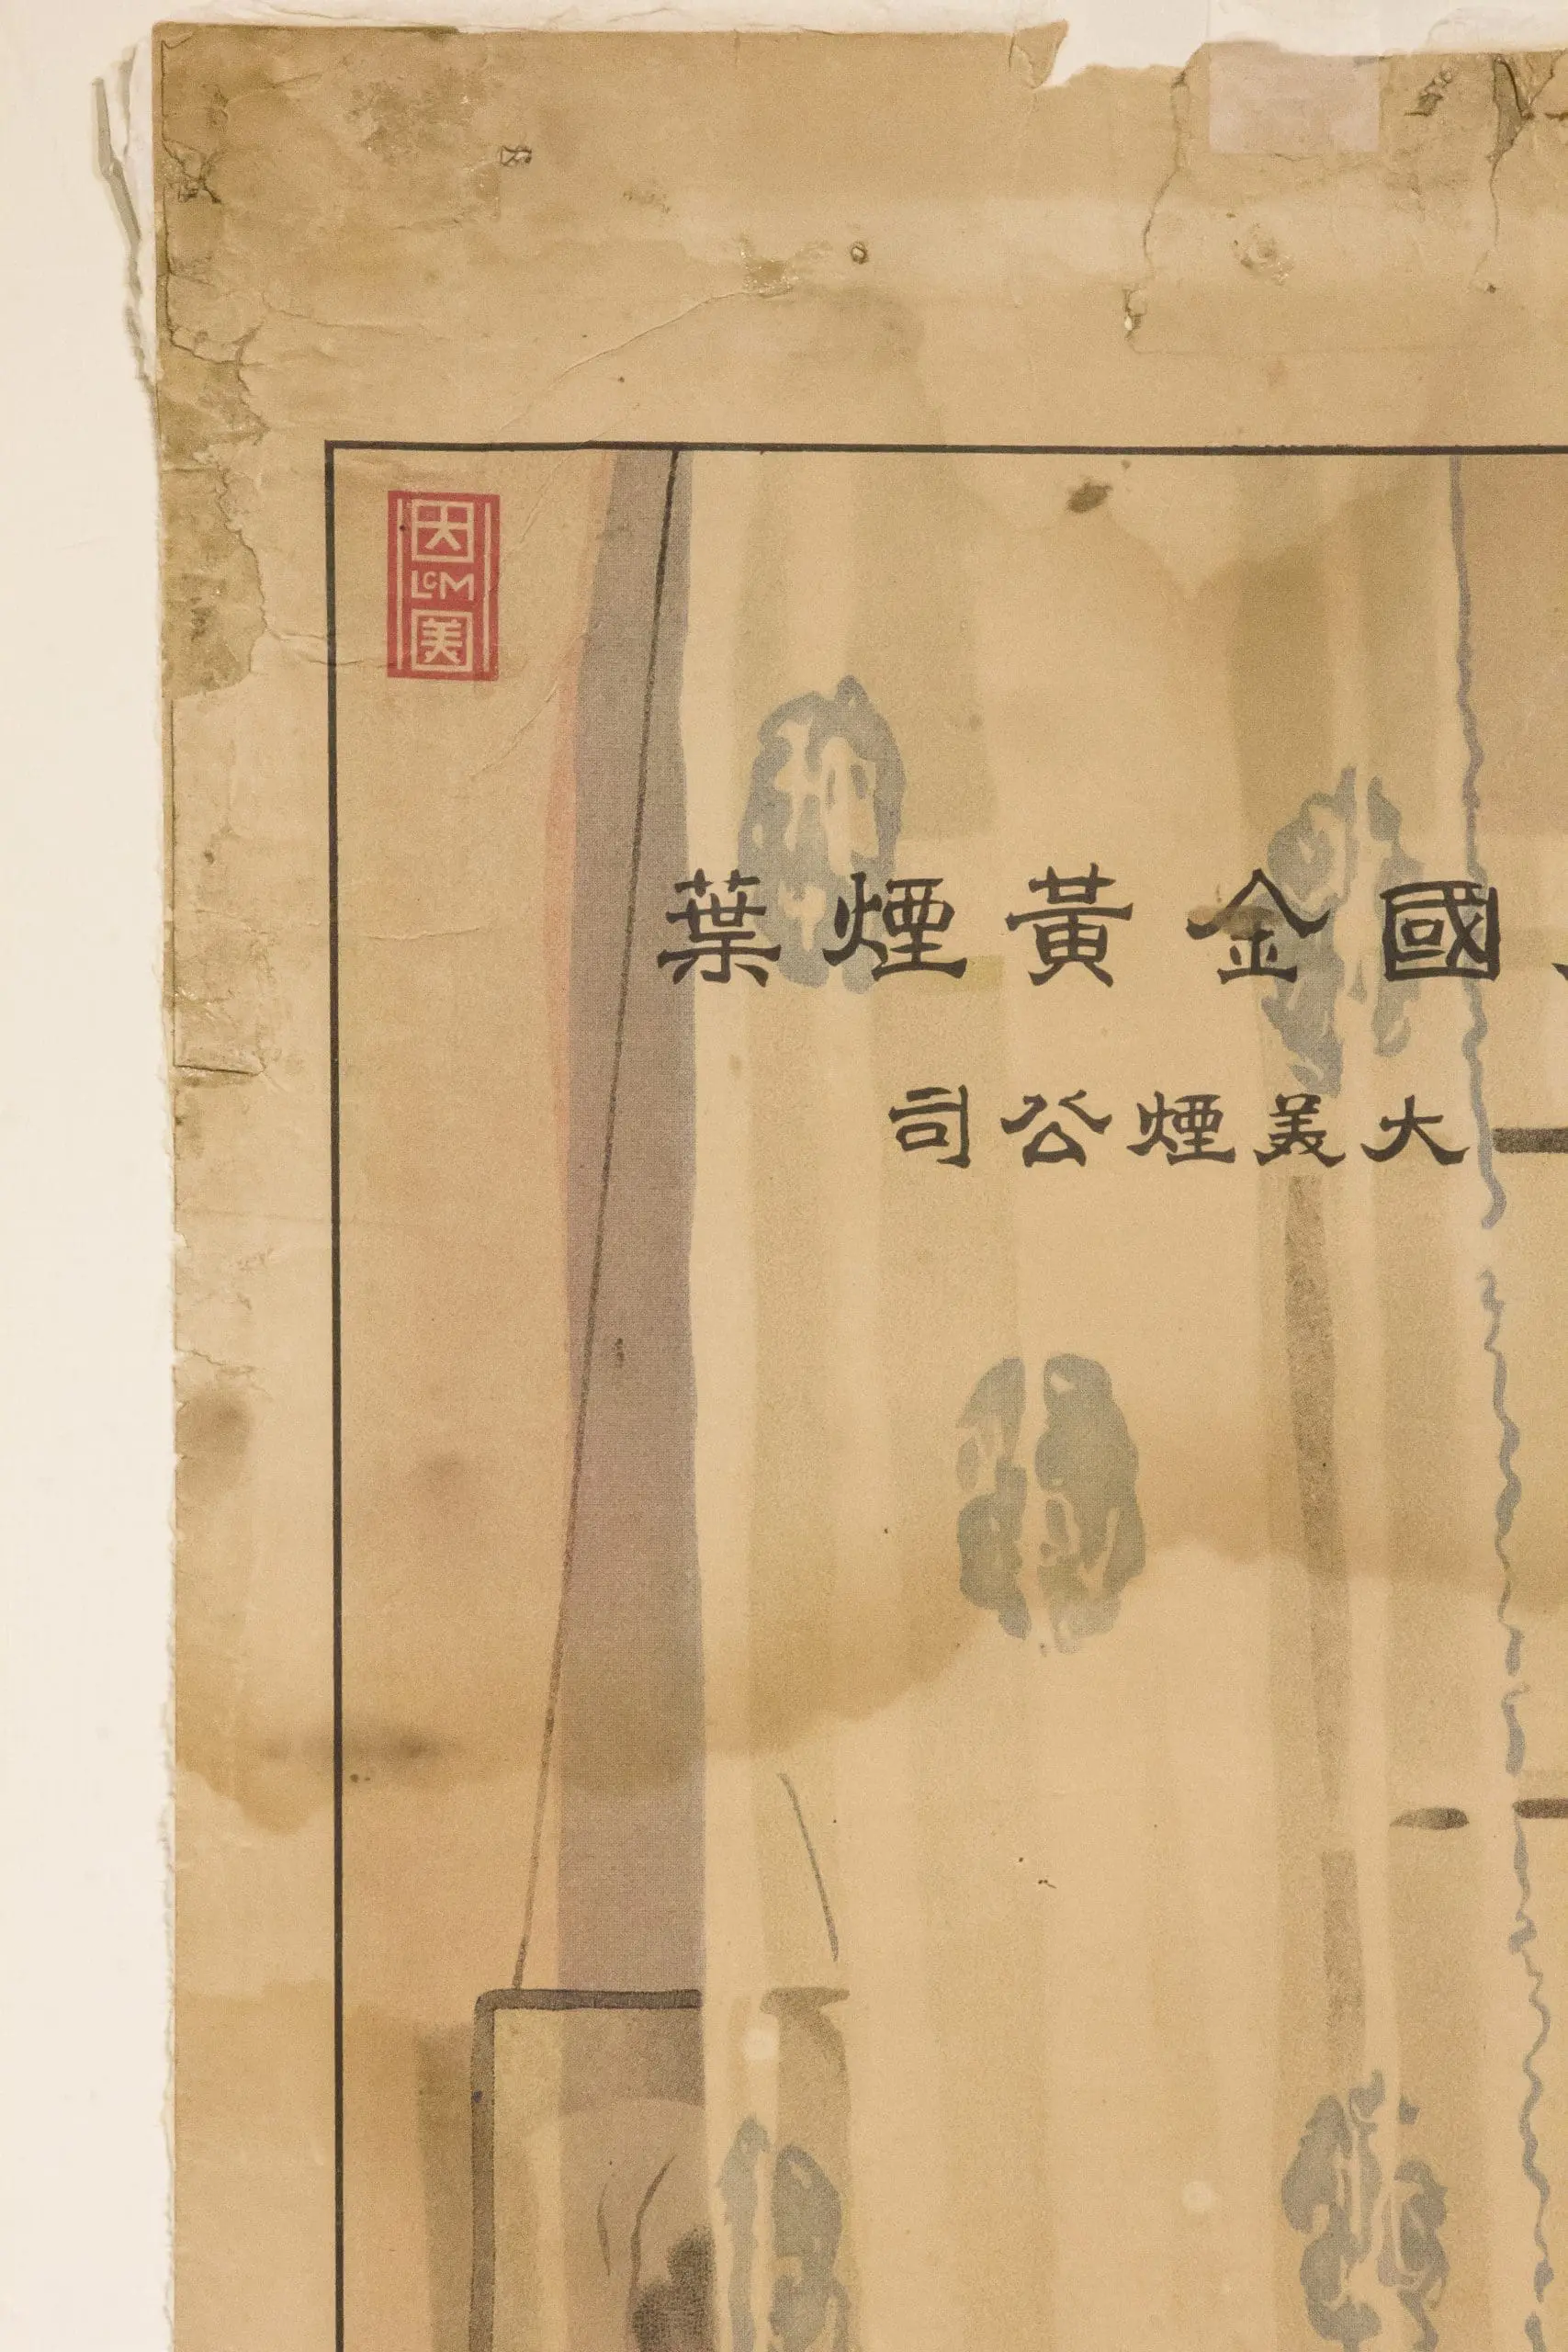 大
LCM
美
國金黃煙葉
大美煙公司